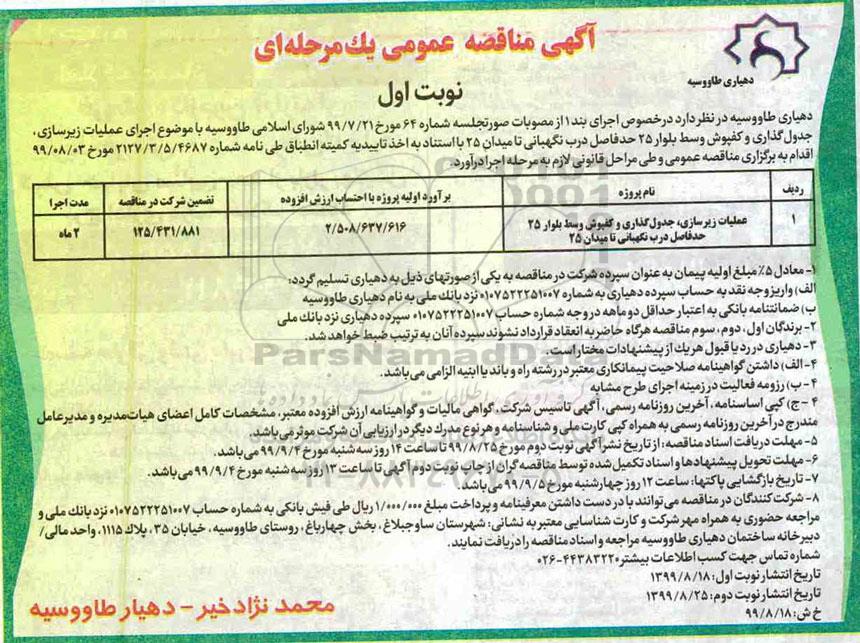 آگهی مناقصه عمومی یک مرحله‌ای
دهیاری طاووسیه
نوبت اول
دهیاری طاووسیه در نظر دارد در خصوص اجرای بند ۱ از مصوبات صورتجلسه شماره ۶۴ مورخ ۹۹/۷/۲۱ شورای اسلامی طاووسیه با موضوع اجرای عملیات زیرسازی،
جدول گذاری و کفپوش وسط بلوار ۲۵ حدفاصل درب نگهبانی تا میدان ۲۵ با استناد به اخذ تاییدیه کمیته انطباق طی نامه شماره ۲۱۲۷/۳/۵/۴۶۸۷ مورخ ۹۹/۰۸/۰۳
اقدام به برگزاری مناقصه عمومی و طی مراحل قانونی لازم به مرحله اجرا درآورد.
ردیف نام پروژه برآورد اولیه پروژه با احتساب ارزش افزوده تضمین شرکت در مناقصه مدت اجرا
۱ عملیات زیرسازی، جدول‌گذاری و کفپوش وسط بلوار ۲۵ ۲/۵۰۸/۶۳۷/۶۱۶ ۱۲۵/۴۳۱/۸۸۱ ۲ ماه
حدفاصل درب نگهبانی تا میدان ۲۵
۱- معادل ۵٪ مبلغ اولیه پیمان به عنوان سپرده شرکت در مناقصه به یکی از صورتهای ذیل به دهیاری تسلیم گردد:
الف) واریز وجه نقد به حساب سپرده دهیاری به شماره ۰۱۰۷۵۲۲۲۵۱۰۰۷ نزد بانک ملی به نام دهیاری طاووسیه
ب) ضمانتنامه بانکی به اعتبار حداقل دو ماهه در وجه شماره حساب ۰۱۰۷۵۲۲۲۵۱۰۰۷ سپرده دهیاری نزد بانک ملی
۲- برندگان اول، دوم، سوم مناقصه هرگاه حاضر به انعقاد قرارداد نشوند سپرده آنان به ترتیب ضبط خواهد شد.
۳- دهیاری در رد یا قبول هر یک از پیشنهادات مختار است.
۴- الف) داشتن گواهینامه صلاحیت پیمانکاری معتبر در رشته راه و باند یا ابنیه الزامی می‌باشد.
۴- ب) رزومه فعالیت در زمینه اجرای طرح مشابه
۴- ج) کپی اساسنامه، آخرین روزنامه رسمی، آگهی تاسیس شرکت، گواهی مالیات و گواهینامه ارزش افزوده معتبر، مشخصات کامل اعضای هیات‌مدیره و مدیرعامل
مندرج در آخرین روزنامه رسمی به همراه کپی کارت ملی و شناسنامه و هر نوع مدرک دیگر در ارزیابی آن شرکت موثر می‌باشد.
۵- مهلت دریافت اسناد مناقصه: از تاریخ نشر آگهی نوبت دوم مورخ ۹۹/۸/۲۵ تا ساعت ۱۴ روز سه شنبه مورخ ۹۹/۹/۴ می‌باشد.
۶- مهلت تحویل پیشنهادها و اسناد تکمیل شده توسط مناقصه گران از چاپ نوبت دوم آگهی تا ساعت ۱۳ روز سه شنبه مورخ ۹۹/۹/۴ می‌باشد.
۷- تاریخ بازگشایی پاکتها: ساعت ۱۲ روز چهارشنبه مورخ ۹۹/۹/۵ می‌باشد.
۸- شرکت کنندگان در مناقصه می‌توانند با در دست داشتن معرفینامه و پرداخت مبلغ ۱/۰۰۰/۰۰۰ ریال طی فیش بانکی به شماره حساب ۰۱۰۷۵۲۲۲۵۱۰۰۷ نزد بانک ملی و
مراجعه حضوری به همراه مهر شرکت و کارت شناسایی معتبر به نشانی: شهرستان ساوجبلاغ، بخش چهارباغ، روستای طاووسیه، خیابان ۳۵، پلاک ۱۱۱۵، واحد مالی/
دبیرخانه ساختمان دهیاری طاووسیه مراجعه و اسناد مناقصه را دریافت نمایند.
شماره تماس جهت کسب اطلاعات بیشتر ۴۴۳۸۳۲۲۰-۰۲۶
تاریخ انتشار نوبت اول: ۱۳۹۹/۸/۱۸
تاریخ انتشار نوبت دوم: ۱۳۹۹/۸/۲۵
خ ش: ۹۹/۸/۱۸
محمد نژاد خیر - دهیار طاووسیه
ParsNamadData